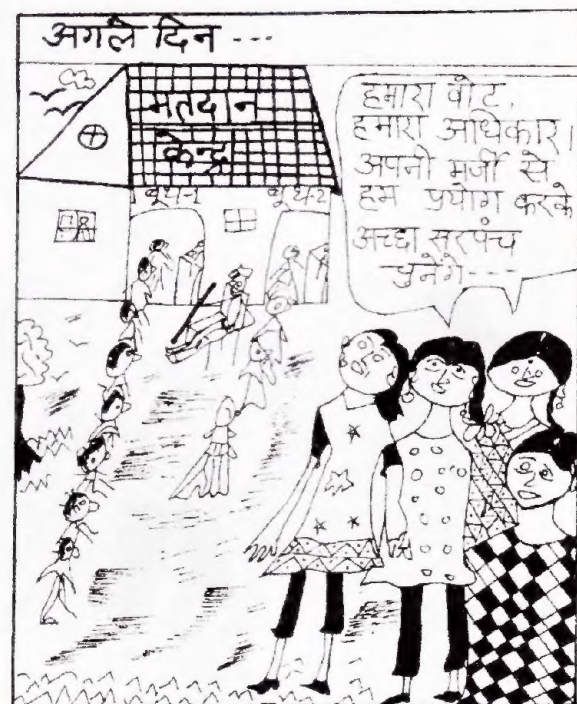 अगले दिन ---
मतदान
केन्द्र
बूथ-1 बूथ-2
हमारा वोट,
हमारा अधिकार।
अपनी मर्जी से
हम प्रयोग करके
अच्छा सरपंच
चुनेंगे---